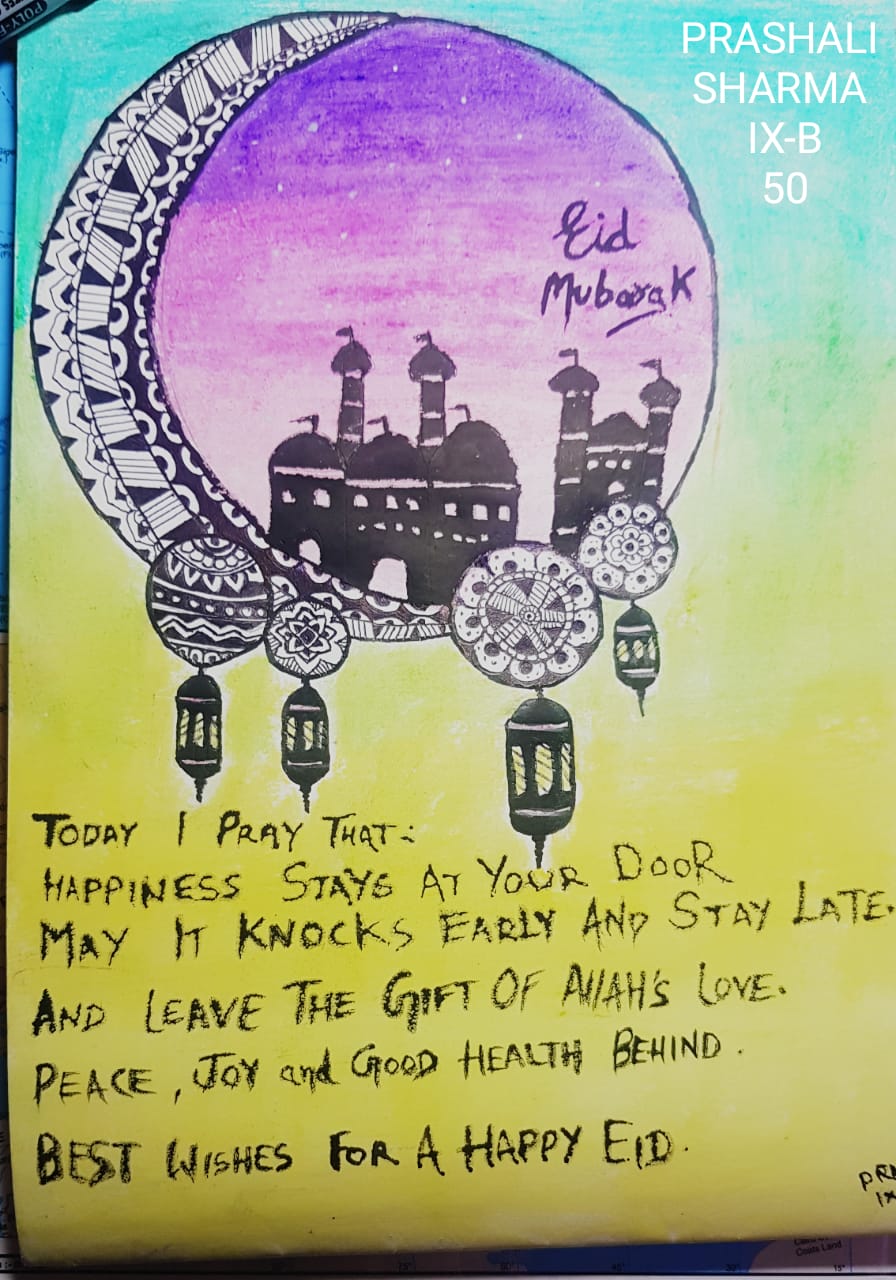 PRASHALI
SHARMA
IX-B
50
Eid
Mubarak
TODAY I PRAY THAT:
HAPPINESS STAYS AT YOUR DOOR
MAY IT KNOCKS EARLY AND STAY LATE.
AND LEAVE THE GIFT OF AllAH'S LOVE.
PEACE, JOY and GOOD HEALTH BEHIND.
BEST WISHES FOR A HAPPY EID.
Coats Land